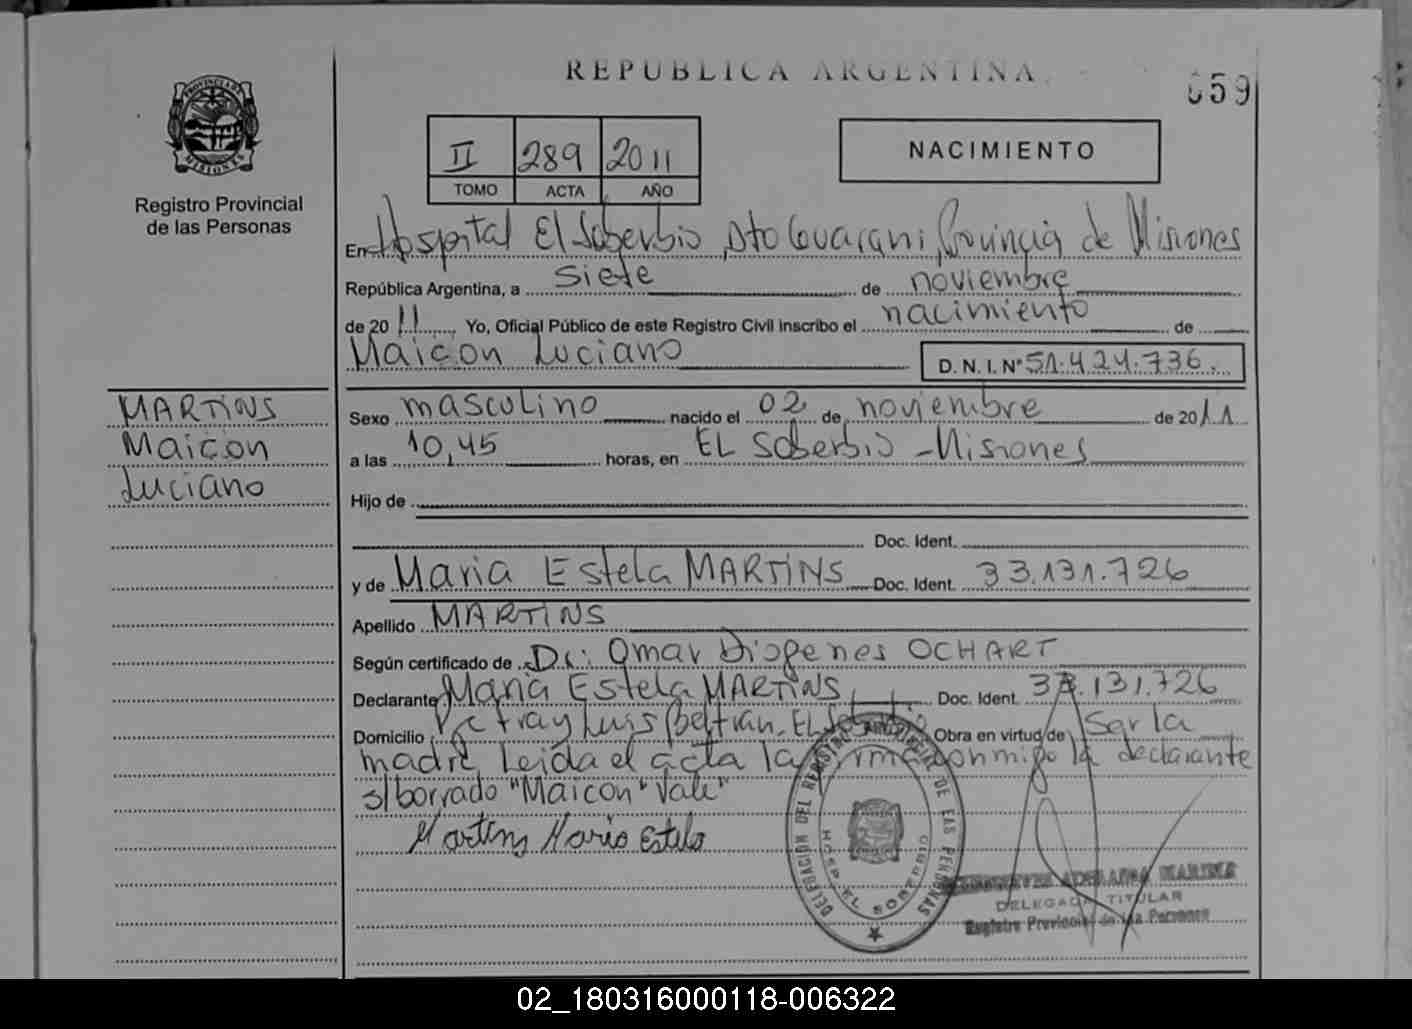 REPUBLICA ARGENTINA
059
PROVINCIA DE
MISIONES
Registro Provincial
de las Personas
II 289 2011
TOMO ACTA AÑO
NACIMIENTO
En Hospital El Soberbio, Dto Guarani, Provincia de Misiones
República Argentina, a siete de noviembre
de 2011 Yo, Oficial Público de este Registro Civil inscribo el nacimiento de
Maicon Luciano D.N.I. Nº 51.424.736.
MARTINS
Maicon
Luciano
Sexo masculino nacido el 02 de noviembre de 2011
a las 10,45 horas, en EL Soberbio - Misiones
Hijo de
Doc. Ident.
y de Maria Estela MARTINS Doc. Ident. 33.131.726
Apellido MARTINS
Según certificado de Dr: Omar Diogenes OCHART
Declarante Maria Estela MARTINS Doc. Ident. 33.131.726
Domicilio Fray Luis Beltran. EL Soberbio Obra en virtud de Ser la
madre Leida el acta la firma conmigo la declarante
s/borrado "Maicon" Vale"
Martins Maria Estela
DELEGACIÓN DEL REGISTRO PROVINCIAL DE LAS PERSONAS
HOSP. EL SOBERBIO
MARINA
DELEGADA TITULAR
Registro Provincial de las Personas
02_180316000118-006322